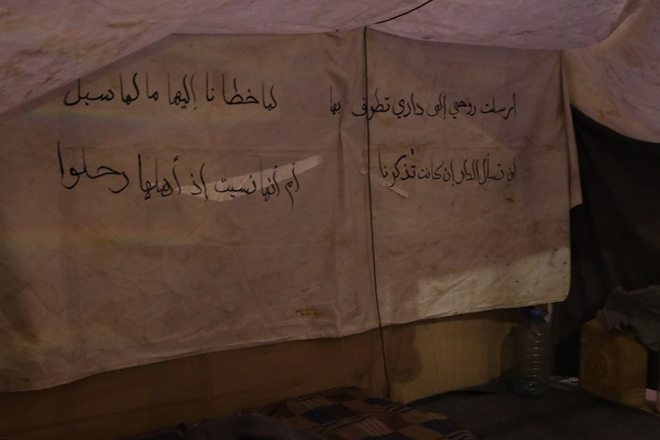 أرسلت روحي إلى داري تطوف بها لما خطانا إليها ما لها سبل
أن تسأل الدار إن كانت تذكرنا أم أنها نسيت إذ أهلها رحلوا